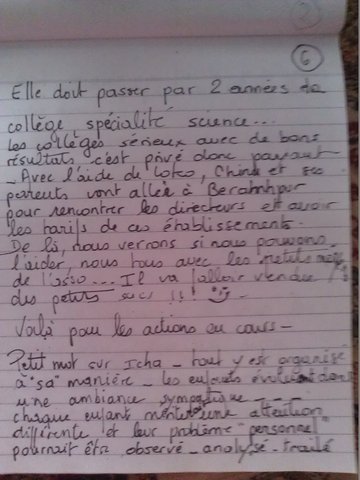 6
Elle doit passer par 2 années de
collège, spécialité science...
Les collèges sérieux avec de bons
résultats c'est privé donc payant
- Avec l'aide de Loteo, et ses
parents vont aller à Berahmpur
pour rencontrer les directeurs et avoir
les tarifs de ces établissements.
De là, nous verrons si nous pouvons
l'aider, nous tous avec les
de l'asso... Il va falloir vendre
des petits sacs !!!
Voilà pour les actions en cours -
Petit mot sur Icha - tout y est organisé
à "sa" manière - les enfants évoluent dans
une ambiance sympatique - - - -
chaque enfant mérite une attention
différente et leur problème "personnel"
pourrait être observé - analysé - traité